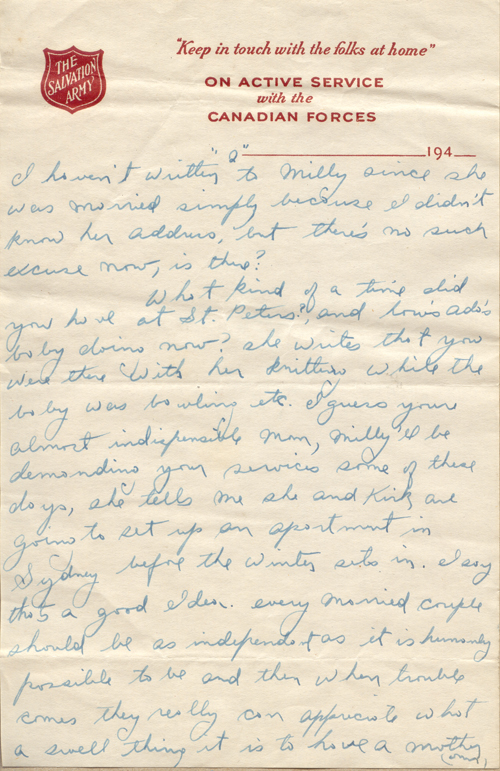 "Keep in touch with the folks at home"
THE
SALVATION
ARMY
ON ACTIVE SERVICE
with the
CANADIAN FORCES
194
"2"
I haven't written to Milly since she
was married simply because I didn't
know her address, but there's no such
excuse now, is there?
What kind of a time did
you have at St. Peters?, and how's Ad's
baby doing now? she writes that you
were there with her knitting while the
baby was bawling etc. I guess your
almost indispensible Mom, Milly'll be
demanding your services some of these
days, she tells me she and Kirk are
going to set up an apartment in
Sydney before the winter sets in. I say
that's a good idea. every married couple
should be as independent as it is humanly
possible to be and then when trouble
comes they really can appreciate what
a swell thing it is to have a mother